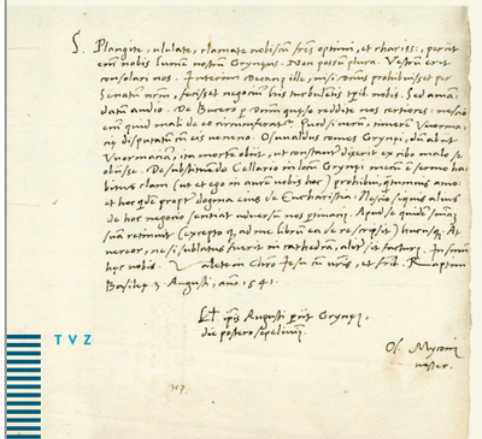 S. Plangite, ululate, clamate nobiscum fres optimi, et chariss:, periit
enim nobis lumen nostrum Grynęus. Non possum plura. Vestrum erit
consolari nos. Interim Decanus ille, nisi Dnus prohibuisset per
Senatum nrm, fecisset negocium his turbulentis tpib nobis. Sed aman
datum audio. De Bucero p Dnum quęso reddite nos certiores: nescio
enim quid mali de eo circumferatur. Quod si verum, timerem Vuorma
cię disputatum cum eis veneno. Osualdus comes Grynęi, dum abiit
Vuormaciam, in morte obiit, ut constanter dixerit ex cibo malo se
obiisse. De substituendo Cellario in locum Grynei mecum est sermo ha
bitus clam (ut et ego in aurem vobis hoc) prohibui, quamvis amo:
et hoc quidem propter dogma eius de Eucharistia. Nescio si quis alius
de hoc negocio sentiat adversum nos
suam retinuit (excepto q, ad me librum ea de re scripsit) hucusq. At
vereor, ne si sublatus fuerit in cathedram, aliter sit facturus.
hęc nobis. Valete in Chro Jesu cum vestris, et frib. Raptim
Basileę 3. Augusti, anno 1541.
ipsis Augusti periit Grynęus,
die postero sepelivimus.
Os. Myconius
vester.
TVZ